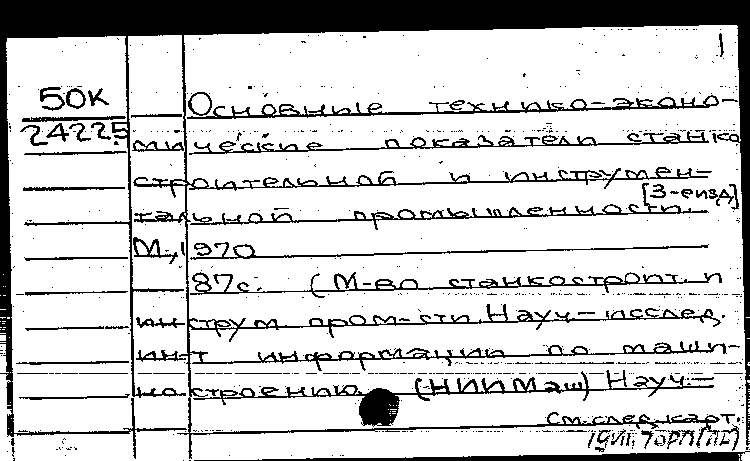 1
50К
24225
Основные технико-эконо-
мические показатели станко
строительной и инструмен-
[3-е изд]
тальной промышленности.
М., 1970
87с. (М-во станкостроит. и
инструм. пром-сти. Науч.-исслед.
ин-т информации по маши-
ностроению (НИИМаш) Науч.-
См.след.карт.